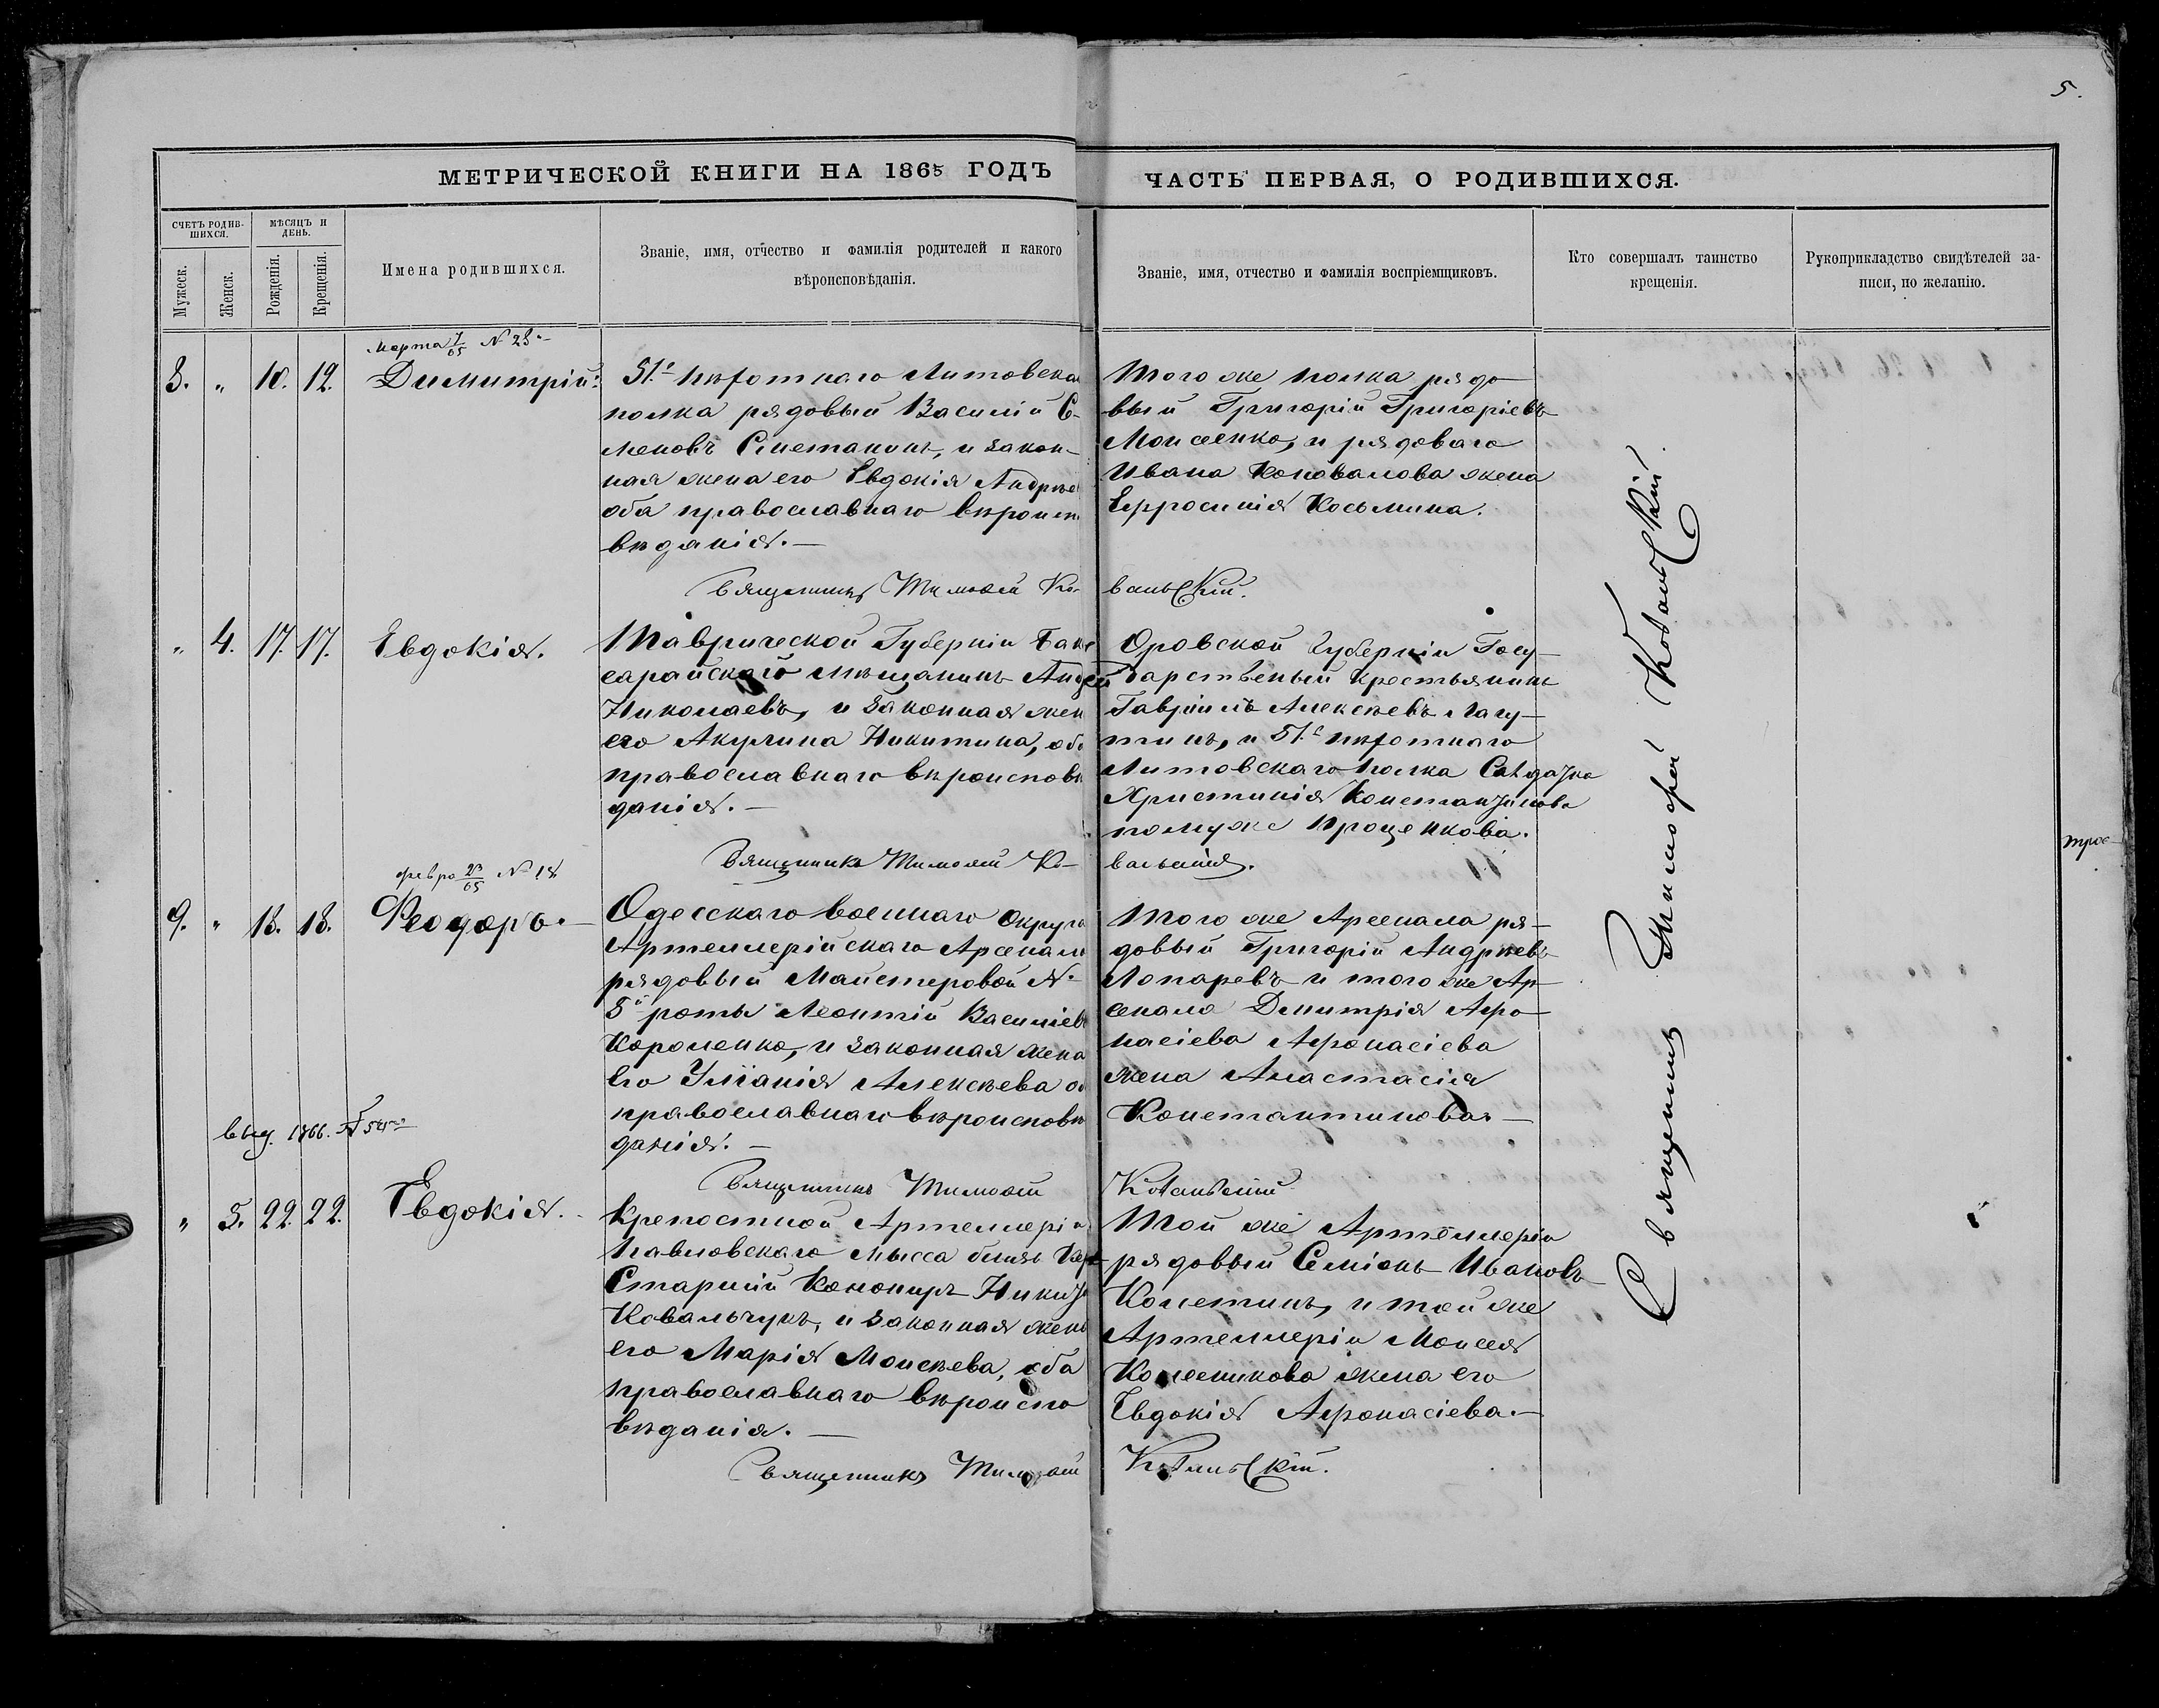 5.
МЕТРИЧЕСКОЙ КНИГИ НА 1865 ГОДЪ
ЧАСТЬ ПЕРВАЯ, О РОДИВШИХСЯ.
СЧЕТЪ РОДИВ-
ШИХСЯ.
МѢСЯЦЪ И
ДЕНЬ.
Мужеск.
Женск.
Рожденія.
Крещенія.
Имена родившихся.
Званіе, имя, отчество и фамилія родителей и какого
вѣроисповѣданія.
Званіе, имя, отчество и фамилія воспріемщиковъ.
Кто совершалъ таинство
крещенія.
Рукоприкладство свидѣтелей за-
писи, по желанію.
Марта 7/65 N 23
8. " 10. 12. Димитрій
51го пѣхотнаго Литовска
полка рядовый Василій С-
меновъ Сметанинъ, и закон-
ная жена его Евдокія Андрѣе
оба православнаго вѣроисп
вѣданія.
Священникъ Тимофей Ко-
Того же полка рядо-
вый Григорій Григоріевъ
Моисеенко, и рядоваго
Ивана Коновалова жена
Ефросинія Косьмина.
ваньскій.
" 4. 17. 17. Евдокія.
Таврической Губерніи Бакч
сарайской мѣщанинъ Андрей
Николаевъ, и законная жен
его Акулина Никитина, об
православнаго вѣроисповѣ
данія.
Священникъ Тимофей Ко-
Орловской Губерніи Госу-
дарственый крестьянинъ
Гавріилъ Алексѣевъ Лагу-
тинъ, и 51го пѣхотнаго
Литовскаго полка Солдатка
Христинія Константинова
помужѣ Проценкова.
ваньскій.
февра 23/65 N 18
9. " 18. 18. Феодоръ.
Одесскаго военнаго Округа
Артеллерійскаго Арсенала
рядовый Майстеровой N
5й роты Леонтій Василіевъ
Короленко, и законная жена
его Уліанія Алексѣева о
православнаго вѣроисповѣ
данія.
Священникъ Тимофей
Того же Арсенала ря-
довый Григорій Андрѣевъ
Лопаревъ и того же Ар-
сенала Дмитрія Афо-
насіева Афонасіева
жена Анастасія
Константинова.
Кованьскій
выд. 1866. N 54
" 5. 22. 22. Евдокія.
Крепостной Артеллеріи
Павловскаго мысса близь Кер
Старшій Канониръ Никита
Ковальчукъ, и законная жена
его Марія Моисѣева, оба
православнаго вѣроиспо
вѣданія.
Священникъ Тимофей
Той же Артеллеріи
рядовый Семіонъ Ивановъ
Костинъ, и той же
Артеллеріи Моисея
Колесникова жена его
Евдокія Афонасіева.
Кованьскій.
Священникъ Тимофей Кованьскій